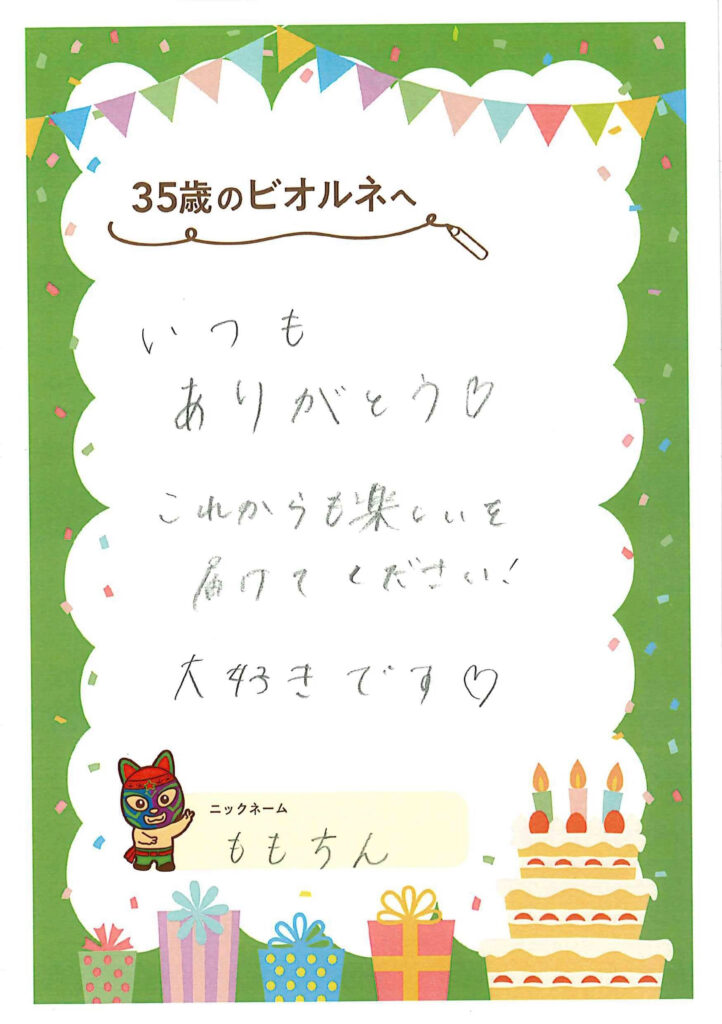 35歳のビオルネへ
いつも
ありがとう♡
これからも楽しいを
届けてください!
大好きです♡
ニックネーム
ももちん